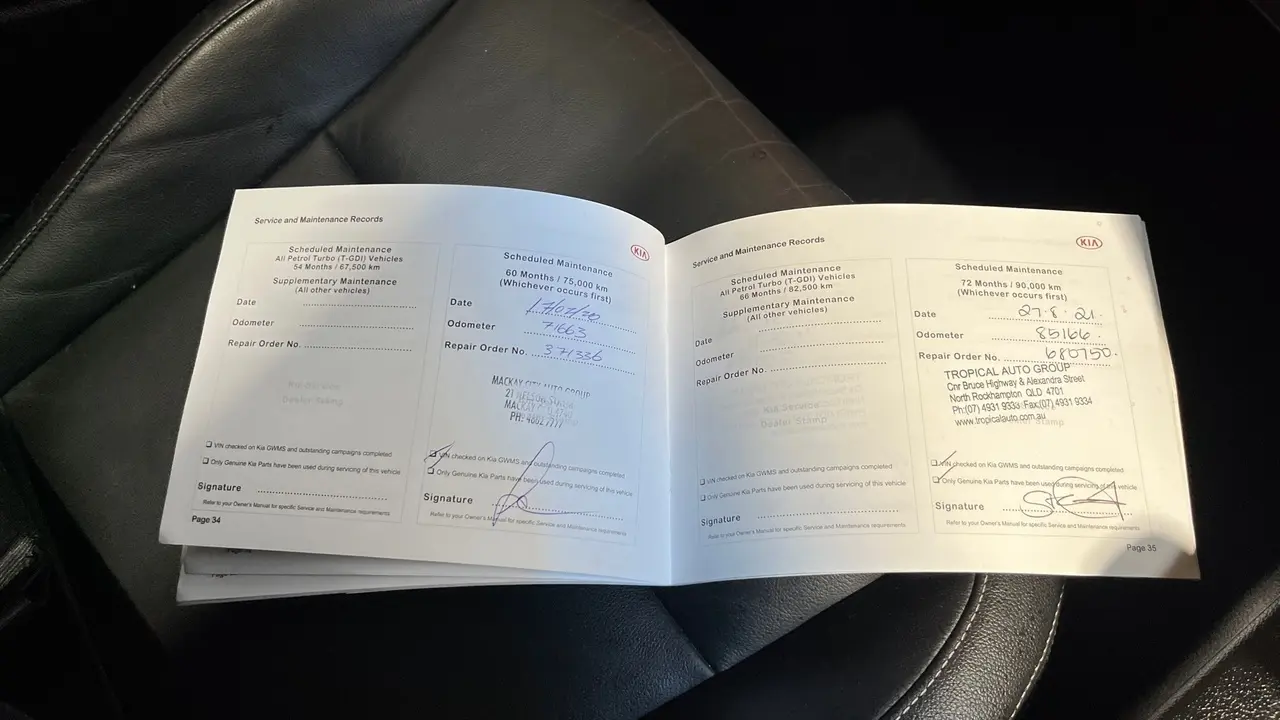 Service and Maintenance Records
KIA
Scheduled Maintenance
All Petrol Turbo (T-GDI) Vehicles
54 Months / 67,500 km
Supplementary Maintenance
(All other vehicles)
Date
Odometer
Repair Order No.
Dealer Stamp
❑ VIN checked on Kia GWMS and outstanding campaigns completed
❑ Only Genuine Kia Parts have been used during servicing of this vehicle
Signature
Refer to your Owner's Manual for specific Service and Maintenance requirements
Page 34
Scheduled Maintenance
60 Months / 75,000 km
(Whichever occurs first)
Date 17/07/20
Odometer 71663
Repair Order No. 371336
MACKAY CITY AUTO GROUP
21
MACKAY
PH:
❑ VIN checked on Kia GWMS and outstanding campaigns completed
❑ Only Genuine Kia Parts have been used during servicing of this vehicle
Signature
Refer to your Owner's Manual for specific Service and Maintenance requirements
Service and Maintenance Records
KIA
Scheduled Maintenance
All Petrol Turbo (T-GDI) Vehicles
66 Months / 82,500 km
Supplementary Maintenance
(All other vehicles)
Date
Odometer
Repair Order No.
Kia Service
Dealer Stamp
❑ VIN checked on Kia GWMS and outstanding campaigns completed
❑ Only Genuine Kia Parts have been used during servicing of this vehicle
Signature
Refer to your Owner's Manual for specific Service and Maintenance requirements
Scheduled Maintenance
72 Months / 90,000 km
(Whichever occurs first)
Date 27.8.21.
Odometer 85166.
Repair Order No. 680750.
TROPICAL AUTO GROUP
Cnr Bruce Highway & Alexandra Street
North Rockhampton QLD 4701
Ph:(07) 4931 9333 Fax:(07) 4931 9334
www.tropicalauto.com.au
Stamp
❑ VIN checked on Kia GWMS and outstanding campaigns completed
❑ Only Genuine Kia Parts have been used during servicing of this vehicle
Signature
Refer to your Owner's Manual for specific Service and Maintenance requirements
Page 35